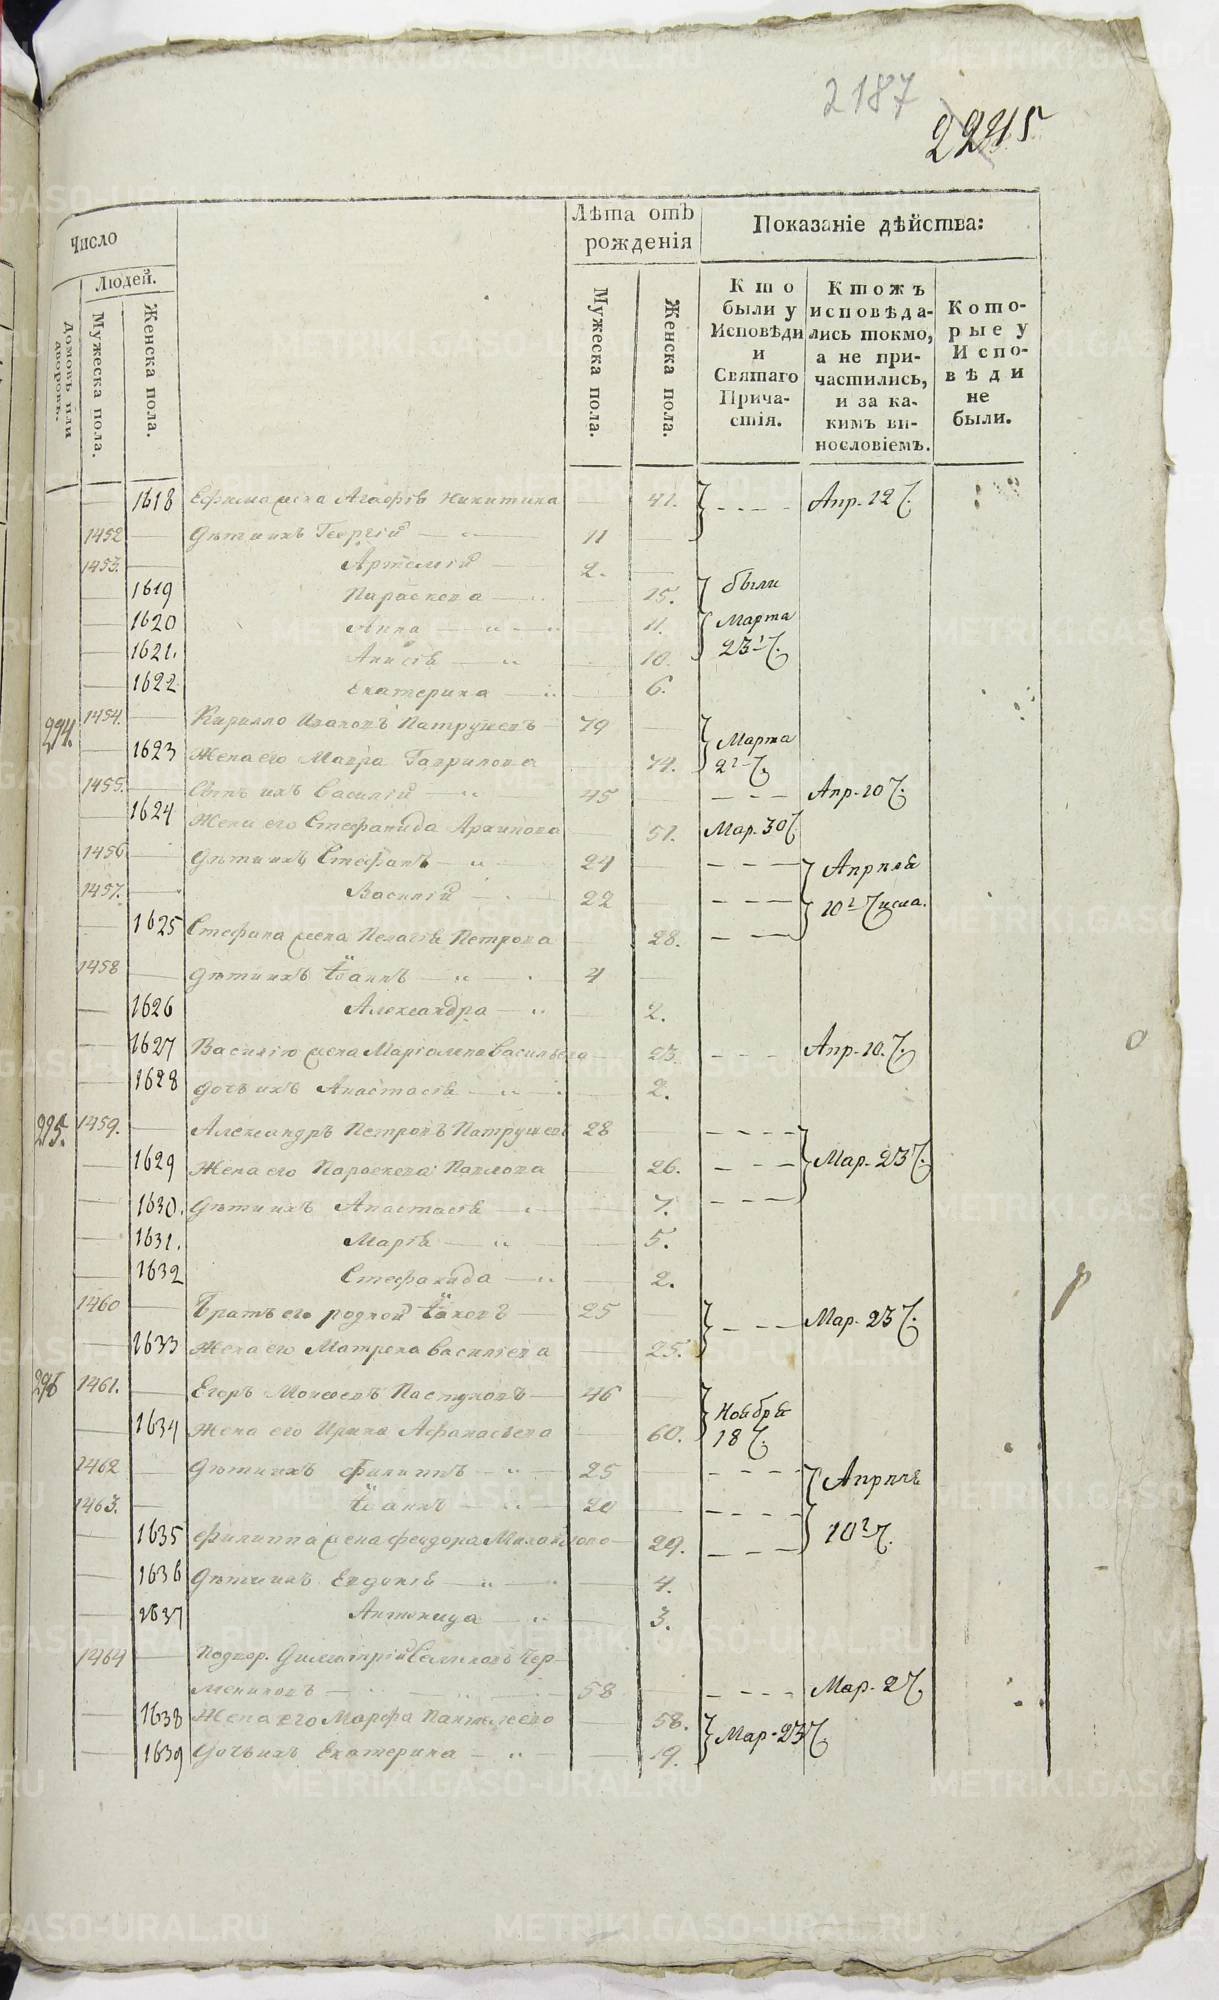 2187
2245
Число
Людей.
Домовъ или дворовъ.
Мужеска пола.
Женска пола.
Лѣта отъ рожденія
Мужеска пола.
Женска пола.
Показаніе дѣйства:
Кто были у Исповѣди и Святаго Причастія.
Ктожъ исповѣдались токмо, а не причастились, и за какимъ винословіемъ.
Которые у Исповѣди не были.
1618 Ефима жена Агафія Никитина 41. Апр. 12 ч.
1452 Дѣти ихъ Георгій 11
1453. Артемій 2.
1619 Параскева 15. были
1620 Анна 11. Марта
1621. Анисія 10. 23 ч.
1622 Екатерина 6.
294. 1454. Кирилло Патрушевъ 79
1623 Жена его Мавра Гаврилова 74. Марта 2 ч.
1455. Сынъ ихъ Василій 45 Апр. 10 ч.
1624 Жена его Стефанида Архипова 51. Мар. 30 ч.
1456 Дѣти ихъ Стефанъ 24 Апрѣля
1457. Василій 22 10 числа.
1625 Стефана жена Пелагія Петрова 28.
1458 Дѣти ихъ Іоаннъ 4
1626 Александра 2.
1627 Василія жена Васильева 23. Апр. 10. ч.
1628 Дочь ихъ Анастасія 2.
295. 1459. Александръ Петровъ Патрушевъ 28
1629 Жена его Параскева Павлова 26. Мар. 23 ч.
1630. Дѣти ихъ Анастасія 7.
1631. Марія 5.
1632 Стефанида 2.
1460 Братъ его родной Іаковъ 25 Мар. 23 ч.
1633 Жена его Матрена Василіева 25.
296 1461. Егоръ Моисеевъ Пастуховъ 46 Ноября
1634 Жена его Ирина Афанасьева 60. 18 ч.
1462 Дѣти ихъ Филиппъ 25 Апрѣля
1463. Іоаннъ 20
1635 Филиппа жена Феодора Михайлова 29. 10 ч.
1636 Дѣти ихъ Евдокія 4.
1637 Антонида 3.
1464 Димитрій
58 Мар. 2 ч.
1638 Жена его Марфа 58. Мар. 23 ч.
1639 Дочь ихъ Екатерина 19.
METRIKI.GASO-URAL.RU